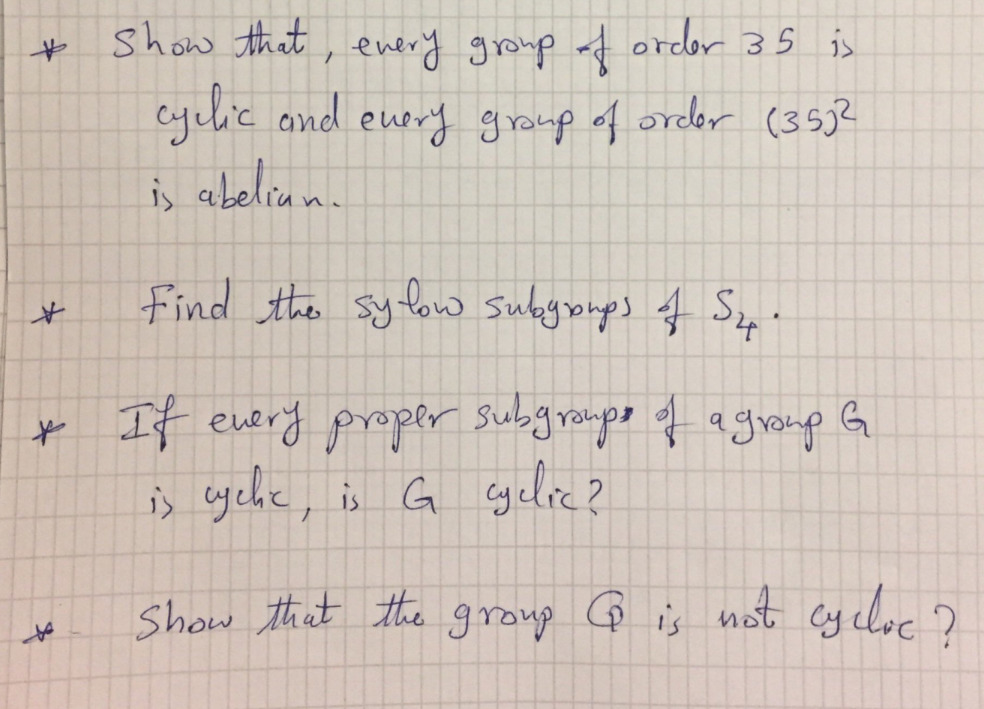 * Show that, every group of order 35 is
cyclic and every group of order (35)²
is abelian.
* Find the sylow subgroups of S₄.
* If every proper subgroups of a group G
is cyclic, is G cyclic?
* Show that the group ℚ is not cyclic?